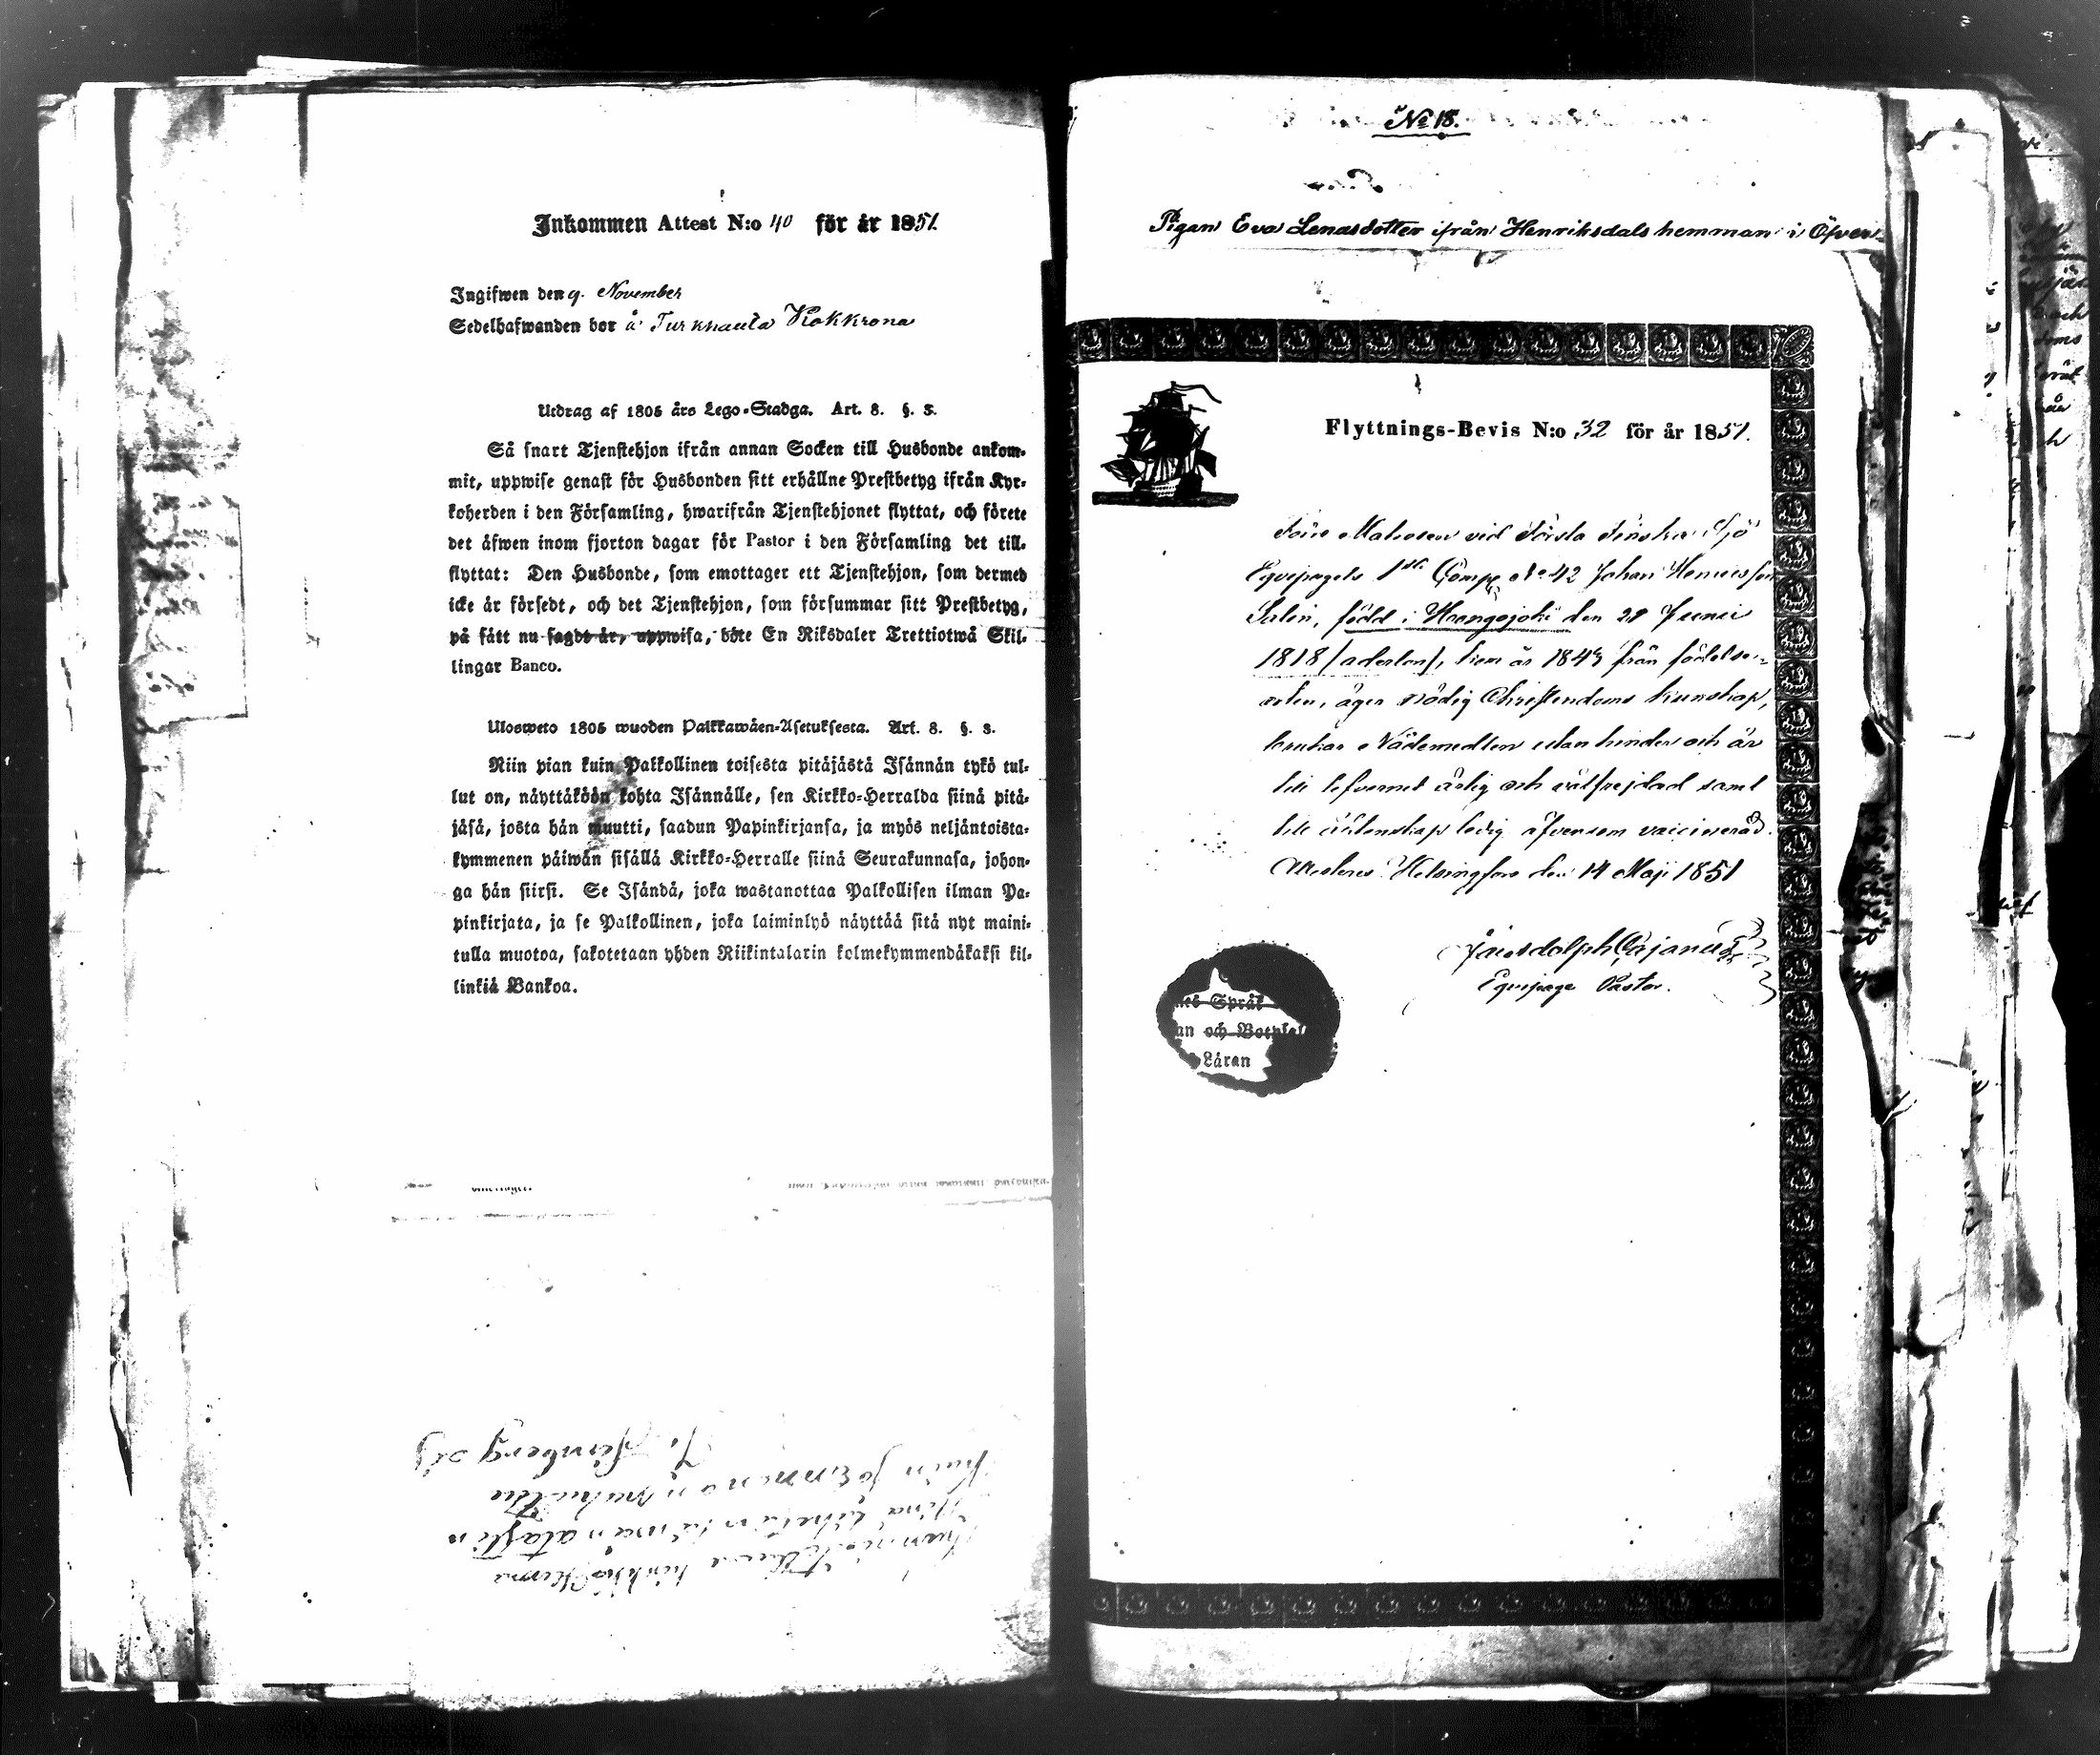 Inkommen Attest N:o 40 för år 1851.
Ingifwen den 9. November
Sedelhafwanden bor å Turkhauta Kokkrona
Utdrag af 1805 års Lego-Stadga. Art. 8. §. 3.
Så snart Tjenstehjon ifrån annan Socken till Husbonde ankom-
mit, uppwise genast för Husbonden sitt erhållne Prestbetyg ifrån Kyr-
koherden i den Församling, hwarifrån Tjenstehjonet flyttat, och förete
det äfwen inom fjorton dagar för Pastor i den Församling det till-
flyttat: Den Husbonde, som emottager ett Tjenstehjon, som dermed
icke är försedt, och det Tjenstehjon, som försummar sitt Prestbetyg,
på sätt nu sagdt är, uppwisa, böte En Riksdaler Trettiotwå Skil-
lingar Banco.
Ulosweto 1805 wuoden Palkkawäen-Asetuksesta. Art. 8. §. 3.
Niin pian kuin Palkollinen toisesta pitäjästä Isännän tykö tul-
lut on, näyttäköön kohta Isännälle, sen Kirkko-Herralda siinä pitä-
jäsä, josta hän muutti, saadun Papinkirjansa, ja myös neljäntoista-
kymmenen päiwän sisällä Kirkko-Herralle siinä Seurakunnasa, johon-
ga hän siirsi. Se Isändä, joka wastanottaa Palkollisen ilman Pa-
pinkirjata, ja se Palkollinen, joka laiminlyö näyttää sitä nyt maini-
tulla muotoa, sakotetaan yhden Riikintalarin kolmekymmendäkaksi kil-
linkiä Bankoa.
№ 18.
Pigan Eva Lenasdotter ifrån Henriksdals hemman i Öfver-
Flyttnings-Bevis N:o 32 för år 1851.
Förre Matrosen vid Första Finska Sjö
Equipagets 1sta Comp. No 42 Johan Henricsson
Salin, född i Wuangojoki den 28 Junii
1818 /aderton/, kom år 1843 från födelse-
orten, äger nödig Christendoms kunskap,
brukar Nådemedlen utan hinder och är
till lefvernet ärlig och välfrejdad samt
till äktenskap ledig äfvensom vaccinerad.
Attesteras. Helsingfors den 14 Maji 1851
Cajanus
Equipage Pastor.
Språk
an och
Läran